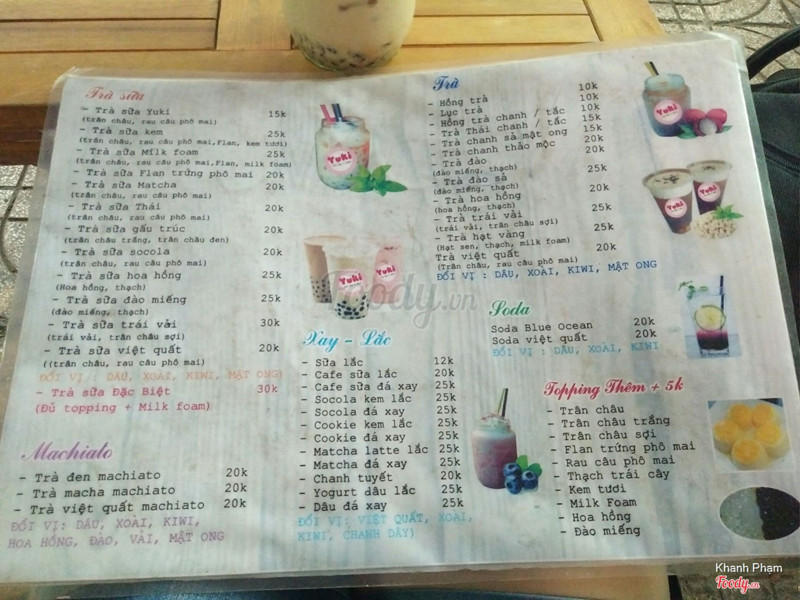 Trà sữa
- Trà sữa Yuki 15k
(trân châu, rau câu phô mai)
- Trà sữa kem 25k
(trân châu, rau câu phô mai,Flan, kem tươi)
- Trà sữa Milk foam 25k
(trân châu, rau câu phô mai,Flan, milk foam)
- Trà sữa Flan trứng phô mai 20k
- Trà sữa Matcha 20k
(trân châu, rau câu phô mai)
- Trà sữa Thái 20k
(trân châu, rau câu phô mai)
- Trà sữa gấu trúc 20k
(trân châu trắng, trân châu đen)
- Trà sữa socola 20k
(trân châu, rau câu phô mai)
- Trà sữa hoa hồng 25k
(Hoa hồng, thạch)
- Trà sữa đào miếng 25k
(đào miếng, thạch)
- Trà sữa trái vải 30k
(trái vải, trân châu sợi)
- Trà sữa việt quất 20k
((trân châu, rau câu phô mai)
ĐỔI VỊ : DÂU, XOÀI, KIWI, MẬT ONG)
- Trà sữa Đặc Biệt 30k
(Đủ topping + Milk foam)
Machiato
- Trà đen machiato 20k
- Trà macha machiato 20k
- Trà việt quất machiato 20k
ĐỔI VỊ: DÂU, XOÀI, KIWI,
HOA HỒNG, ĐÀO, VẢI, MẬT ONG
Yuki
Yuki
Xay - Lắc
- Sữa lắc 12k
- Cafe sữa lắc 20k
- Cafe sữa đá xay 25k
- Socola kem lắc 25k
- Socola đá xay 25k
- Cookie kem lắc 25k
- Cookie đá xay 25k
- Matcha latte lắc 25k
- Matcha đá xay 25k
- Chanh tuyết 20k
- Yogurt dâu lắc 25k
- Dâu đá xay 25k
ĐỔI VỊ: VIỆT QUẤT, XOÀI,
KIWI, CHANH DÂY)
Trà
- Hồng trà 10k
- Lục trà 10k
- Hồng trà chanh / tắc 10k
- Trà Thái chanh / tắc 15k
- Trà chanh sả mật ong 15k
- Trà chanh thảo mộc 20k
- Trà đào 25k
(đào miếng, thạch)
- Trà đào sả 25k
(đào miếng, thạch)
- Trà hoa hồng 20k
(hoa hồng, thạch)
- Trà trái vải 25k
(trái vải, trân châu sợi)
- Trà hạt vàng 25k
(Hạt sen, thạch, milk foam)
Trà việt quất 20k
(Trân châu, rau câu phô mai)
ĐỔI VỊ: DÂU, XOÀI, KIWI, MẬT ONG
Soda
Soda Blue Ocean 20k
Soda việt quất 20k
ĐỔI VỊ : DÂU, XOÀI, KIWI
Topping Thêm + 5k
- Trân châu
- Trân châu trắng
- Trân châu sợi
- Flan trứng phô mai
- Rau câu phô mai
- Thạch trái cây
- Kem tươi
- Milk Foam
- Hoa hồng
- Đào miếng
Yuki
Yuki
Yuki
Foody.vn
Khanh Pham
Foody.vn